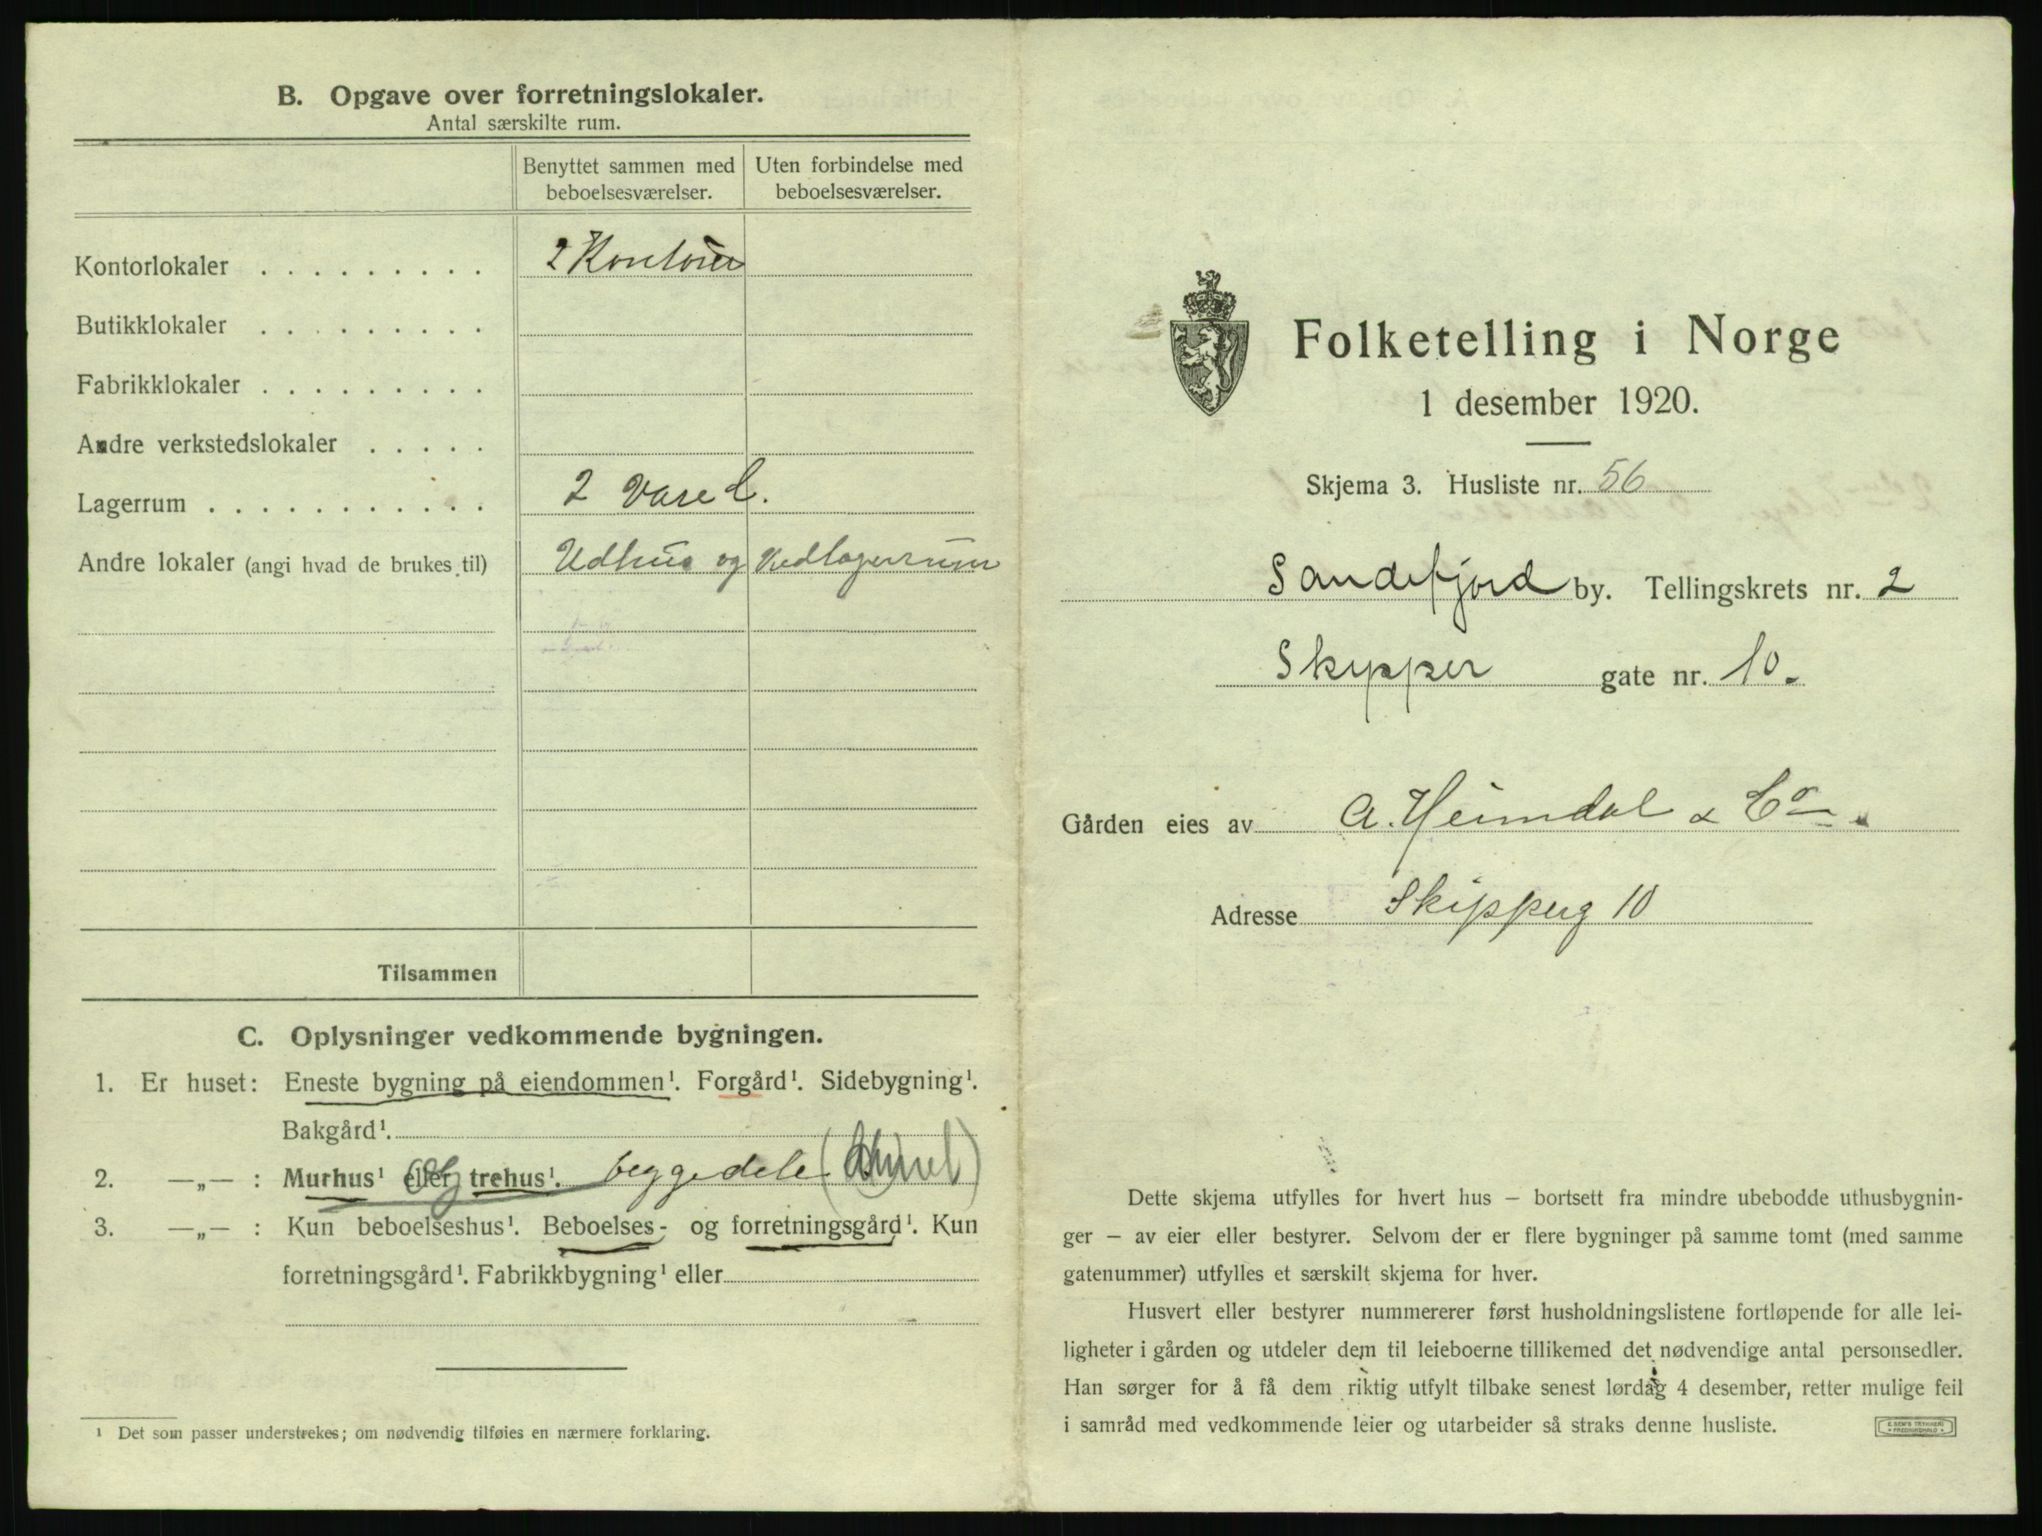 B. Opgave over forretningslokaler.
Antal særskilte rum.
Benyttet sammen med beboelsesværelser.
Uten forbindelse med beboelsesværelser.
Kontorlokaler . . . . . . . . . 2 Kontorer
Butikklokaler . . . . . . . . .
Fabrikklokaler . . . . . . . . .
Andre verkstedslokaler . . . . .
Lagerrum . . . . . . . . . . . 2 Vare l.
Andre lokaler (angi hvad de brukes til) Udhus og Vedlagerrum
Tilsammen
C. Oplysninger vedkommende bygningen.
1. Er huset: Eneste bygning på eiendommen¹. Forgård¹. Sidebygning¹.
Bakgård¹.
2. —„— : Murhus¹ eller trehus¹. beggedele
3. —„— : Kun beboelseshus¹. Beboelses- og forretningsgård¹. Kun
forretningsgård¹. Fabrikkbygning¹ eller
¹ Det som passer understrekes; om nødvendig tilføies en nærmere forklaring.
Folketelling i Norge
1 desember 1920.
Skjema 3. Husliste nr. 56
Sandefjord by. Tellingskrets nr. 2
Skipper gate nr. 10.
Gården eies av A. Heimdal & Co.
Adresse Skipperg 10
Dette skjema utfylles for hvert hus – bortsett fra mindre ubebodde uthusbygnin-
ger – av eier eller bestyrer. Selvom der er flere bygninger på samme tomt (med samme
gatenummer) utfylles et særskilt skjema for hver.
Husvert eller bestyrer nummererer først husholdningslistene fortløpende for alle lei-
ligheter i gården og utdeler dem til leieboerne tillikemed det nødvendige antal personsedler.
Han sørger for å få dem riktig utfylt tilbake senest lørdag 4 desember, retter mulige feil
i samråd med vedkommende leier og utarbeider så straks denne husliste.